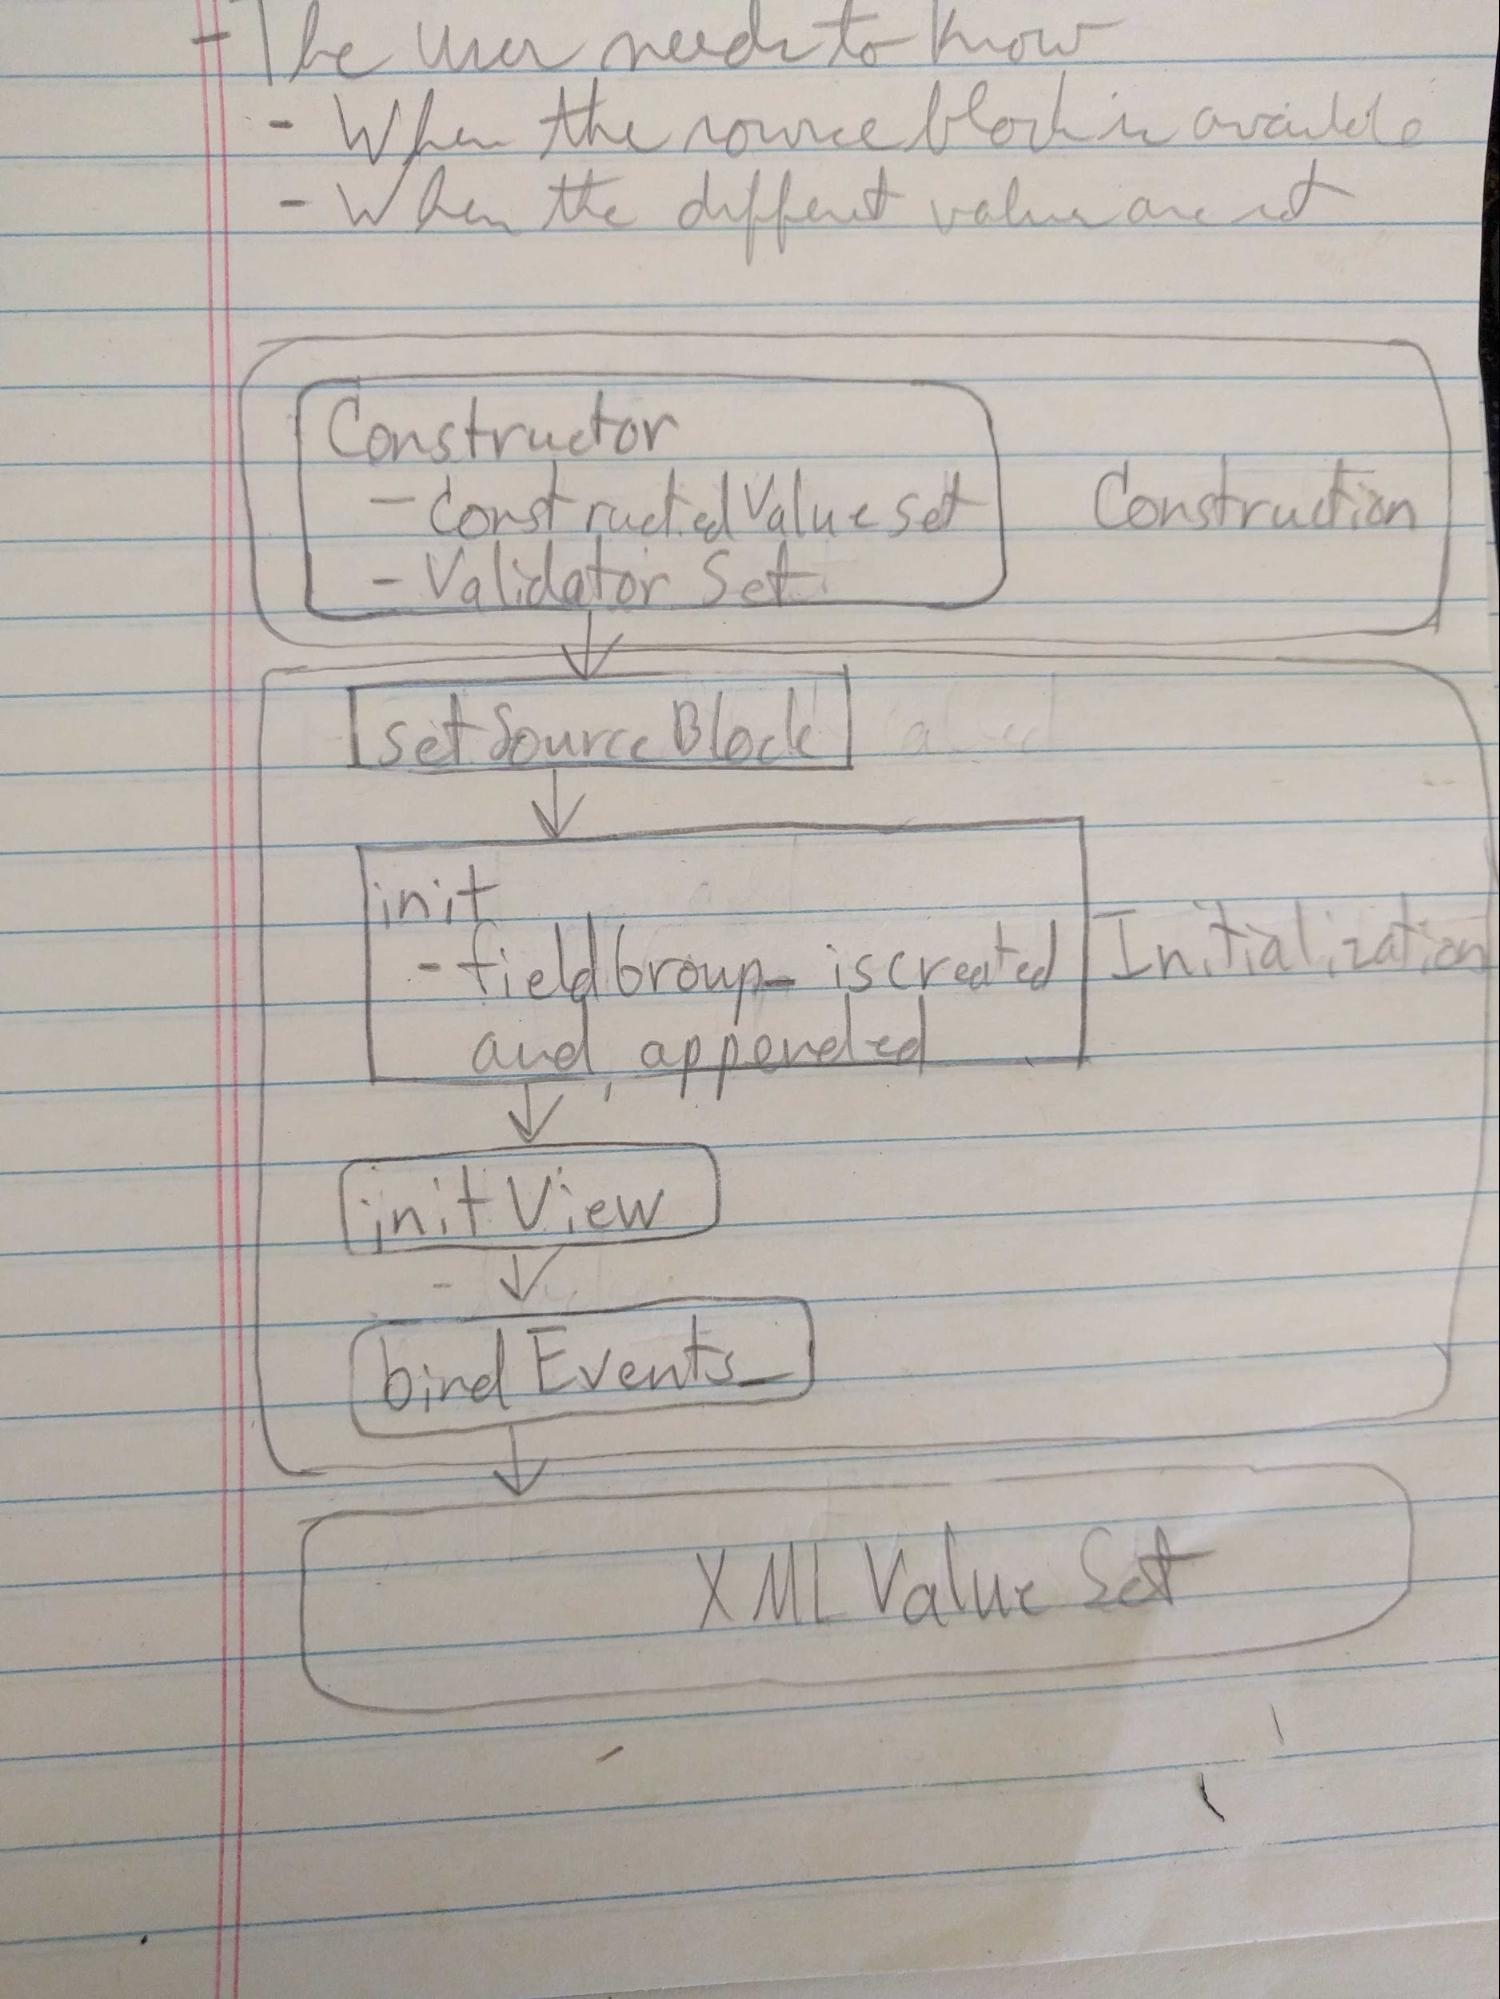 - The user needs to know
- When the source block is available
- When the different value are set
Constructor
- Constructed Value set
- Validator Set
Construction
setSourceBlock
init
- fieldGroup_ is created
and appended
Initialization
initView
bindEvents_
XML Value Set